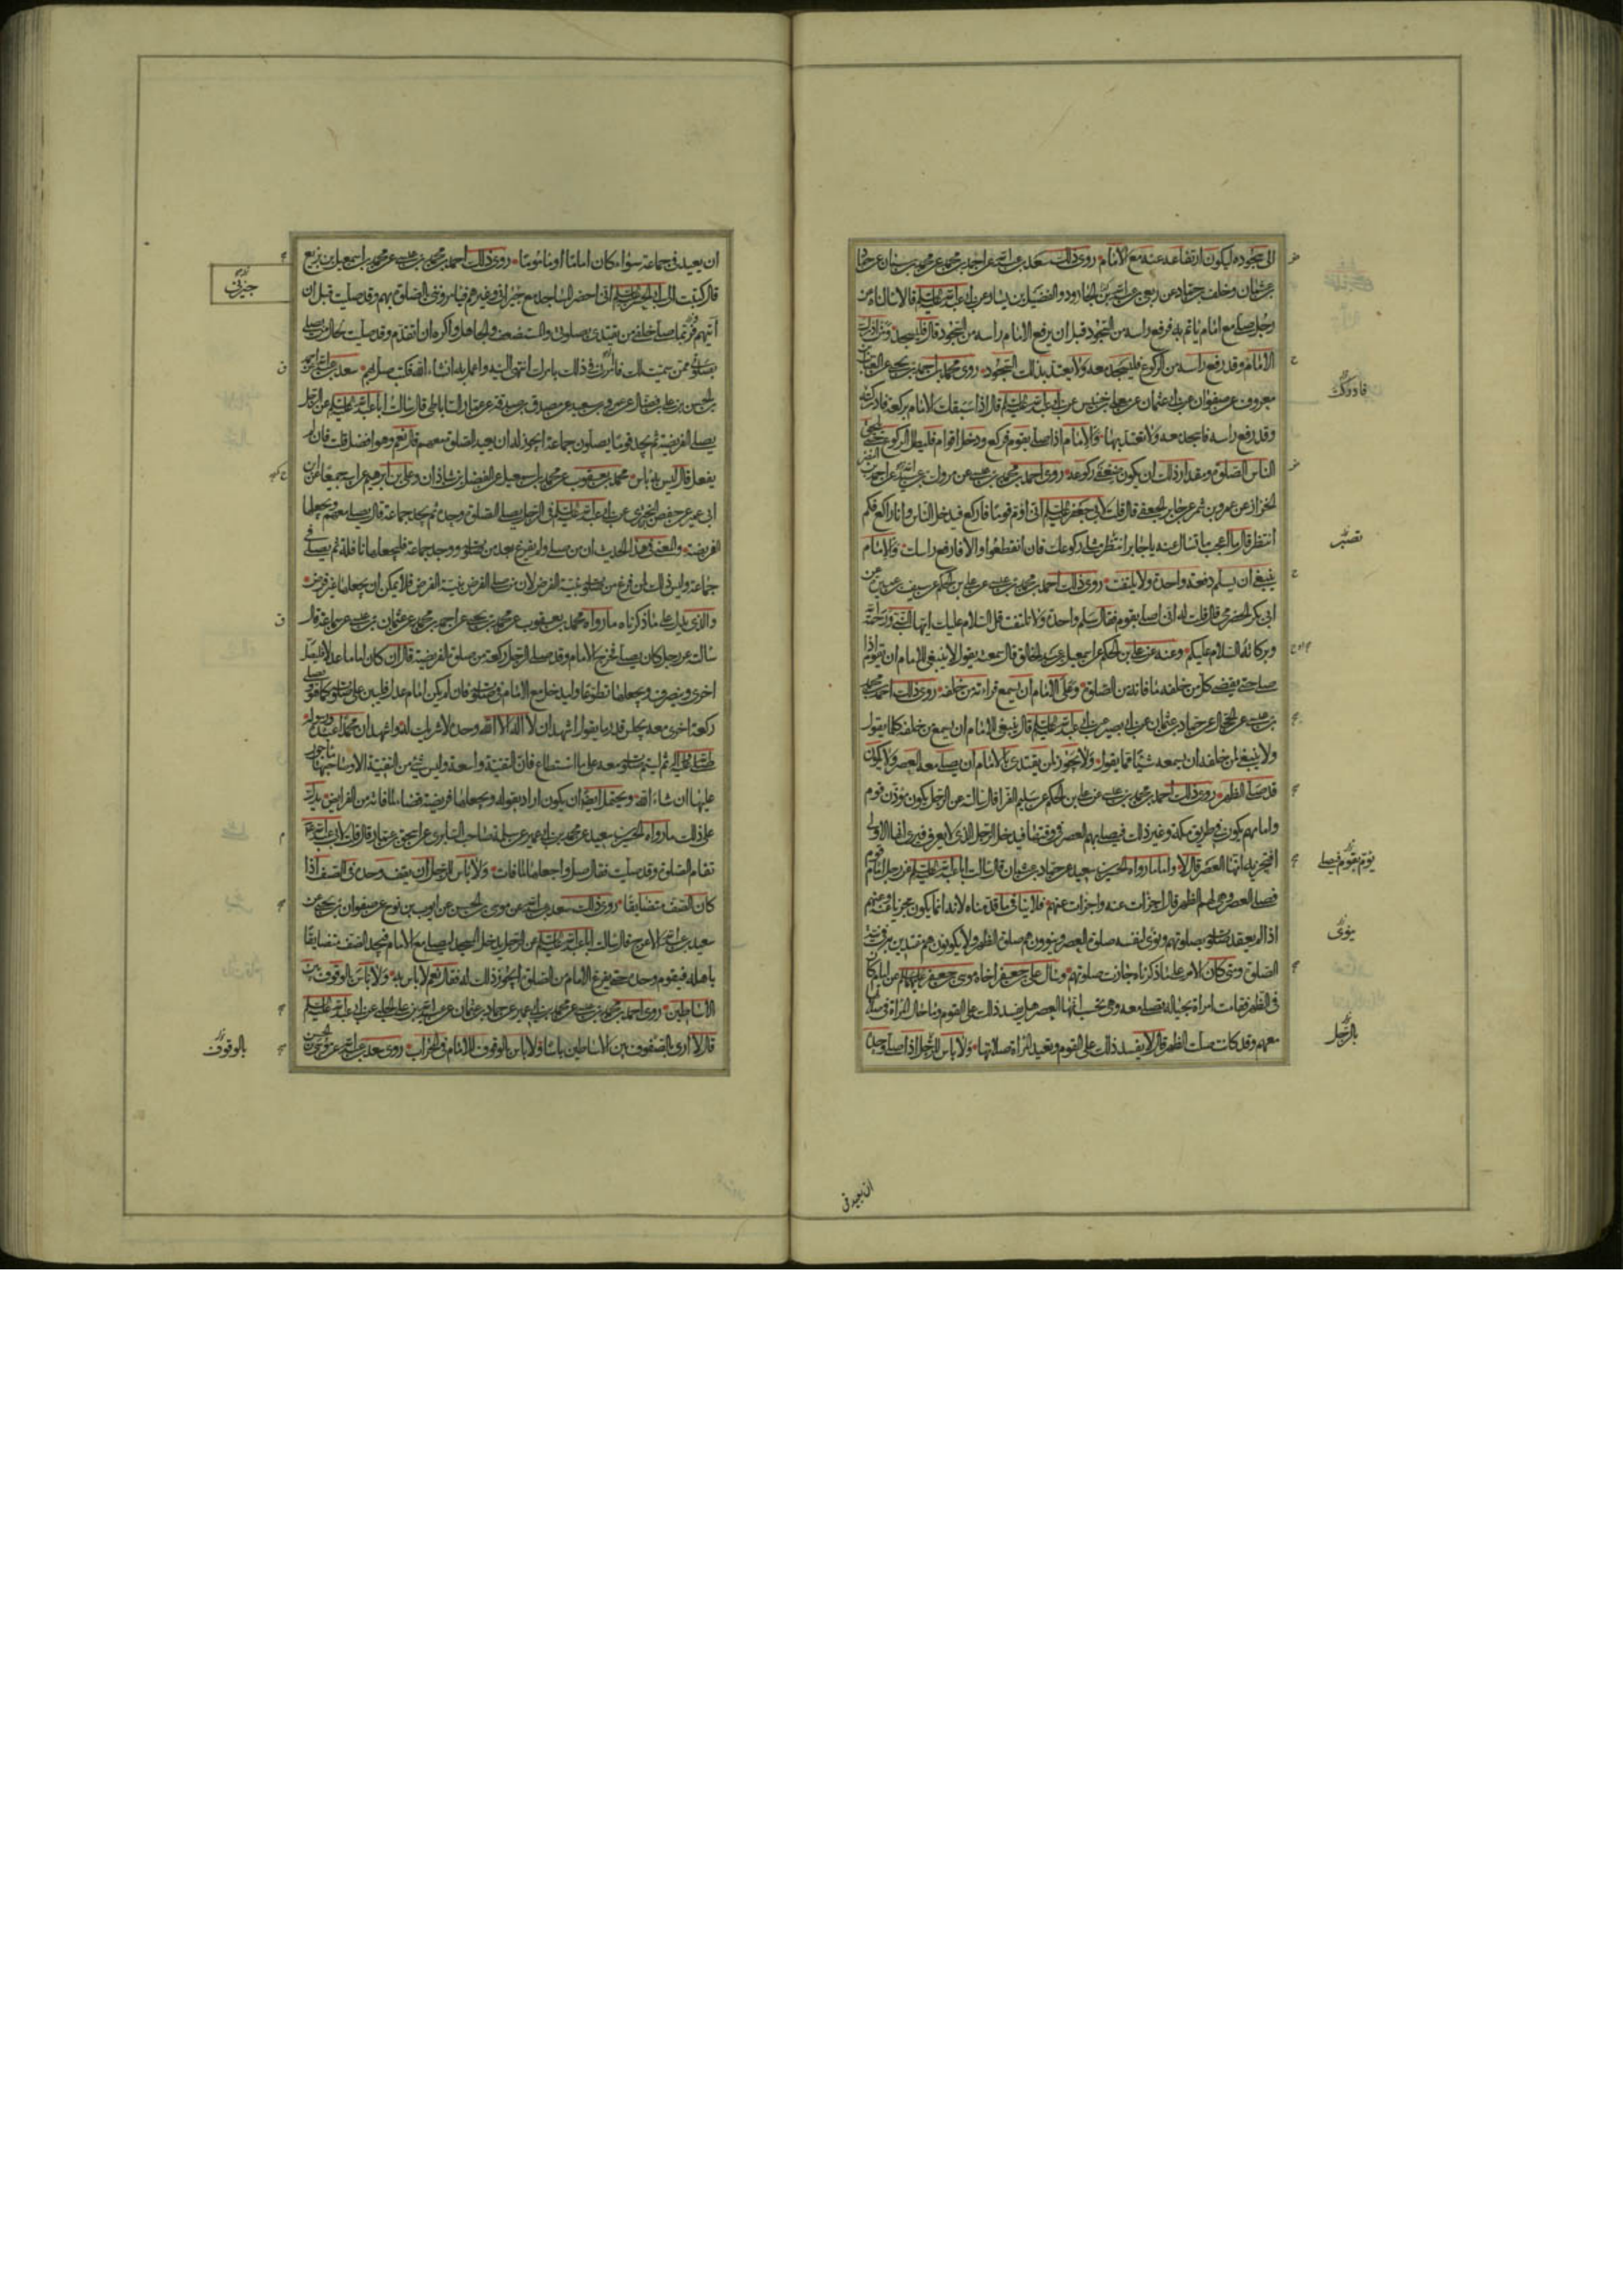 الى سجوده ليكون ارتفاعه عنه مع الامام روى ذلك سعد بن عبد الله عن احمد بن محمد عن محمد بن سنان عن حماد
بن عثمان وخلف بن حماد عن ربعي بن عبد الله بن الجارود والفضيل بن يسار عن ابي عبد الله عليه السلم قالا سالناه عن
رجل صلى مع امام ياتم به فرفع راسه من السجود قبل ان يرفع الامام راسه من السجود قال فليسجد ومن ادرك
الامام وقد رفع راسه من الركوع فليسجد معه ولا يعتد بذلك السجود روى محمد بن احمد بن يحيى عن العباس بن
معروف عن صفوان عن ابي عثمان عن معلى بن خنيس عن ابي عبد الله عليه السلم قال اذا سبقك الامام بركعة فادركته
وقد رفع راسه فاسجد معه ولا تعتد بها والامام اذا صلى بقوم فركع ودخل اقوام فليطل الركوع حتى يلحق
الناس الصلوة ومقدار ذلك ان يكون ضعفي ركوعه روى احمد بن محمد بن عيسى عن مروك بن عبيد عن احمد بن النضر
الخزاز عن عمرو بن شمر عن جابر الجعفي قال قلت لابي جعفر عليه السلم اني اؤم قوما فاركع فيدخل الناس وانا راكع فكم
انتظر قال ما اعجب ما تسال عنه يا جابر انتظر مثلي ركوعك فان انقطعوا والا فارفع راسك والامام
ينبغي ان يسلم دفعة واحدة ولا يلتفت روى ذلك احمد بن محمد بن عيسى عن علي بن الحكم عن سيف بن عميرة عن
ابي بكر الحضرمي قال قلت له اني اصلي بقوم فقال سلم واحدة ولا تلتفت قل السلام عليك ايها النبي ورحمة الله
وبركاته السلام عليكم وعنه عن علي بن الحكم عن اسمعيل بن عبد الخالق قال سمعته يقول لا ينبغي للامام ان يقوم اذا
صلى حتى يقضي كل من خلفه ما فاته من الصلوة وعلى الامام ان يسمع قراءته من خلفه روى ذلك احمد بن محمد
بن عيسى عن الحجال عن حماد بن عثمان عن ابي بصير عن ابي عبد الله عليه السلم قال ينبغي للامام ان يسمع من خلفه كلما يقول
ولا ينبغي لمن خلفه ان يسمعه شيئا مما يقول ولا يجوز لمن يقتدي بالامام ان يصلي معه العصر ولا يكون
قد صلى الظهر روى ذلك احمد بن محمد بن عيسى عن علي بن الحكم عن سليم الفرا قال سالته عن الرجل يكون مؤذن قوم
وامامهم يكون في طريق مكة وغير ذلك فيصلي بهم العصر في وقتها فيدخل الرجل الذي لا يعرف فيرى انها الاولى
افتجزيه انها العصر قال لا واما ما رواه الحسين بن سعيد عن حماد بن عثمان قال سالت ابا عبد الله عليه السلم عن رجل امام قوم
فصلى العصر وهي لهم الظهر قال اجزات عنه واجزات عنهم فلا ينافي ما قدمناه لانه انما يكون مجزيا عنه وعنهم
اذا لم يعقد صلوته بصلوتهم ونوى لنفسه صلوة العصر وينوون هم صلوة الظهر ولا يكونون هم مقتدين به في نية
الصلوة ومتى كان الامر على ما ذكرناه جازت صلوتهم وسال علي بن جعفر اخاه موسى بن جعفر عليهما السلم عن امام كان
في الظهر فقامت امراة بحياله تصلي معه وهي تحسب انها العصر هل يفسد ذلك على القوم وما حال المراة في صلاتها
معهم وقد كانت صلت الظهر قال لا يفسد ذلك على القوم وتعيد المراة صلاتها ولا باس للرجل اذا صلى وحده
فادرك
تصبر
يؤم بقوم فيصلي
ينوي
بالرجل
ان يعيد في
ان يعيد في جماعة سواء كان اماما او ماموما روى ذلك احمد بن محمد بن عيسى عن محمد بن اسمعيل بن بزيع
قال كتبت الى ابي الحسن عليه السلم اني احضر المساجد مع جيراني وغيرهم فيامروني بالصلوة بهم وقد صليت قبل ان
آتيهم فربما صلى خلفي من يقتدي بصلوتي والمستضعف والجاهل واكره ان اتقدم وقد صليت بحال من يصلي
بصلوتي ممن سميت لك فامرني في ذلك بامرك انتهي اليه واعمل به ان شاء الله فكتب صل بهم سعد بن عبد الله عن احمد
بن الحسن بن علي بن فضال عن عمرو بن سعيد عن مصدق بن صدقة عن عمار الساباطي قال سالت ابا عبد الله عليه السلم عن الرجل
يصلي الفريضة ثم يجد قوما يصلون جماعة ايجوز له ان يعيد الصلوة معهم قال نعم وهو افضل قلت فان لم
يفعل قال ليس به باس محمد بن يعقوب عن محمد بن اسمعيل عن الفضل بن شاذان وعلي بن ابرهيم عن ابيه جميعا عن ابن
ابي عمير عن حفص بن البختري عن ابي عبد الله عليه السلم في الرجل يصلي الصلوة وحده ثم يجد جماعة قال يصلي معهم ويجعلها
الفريضة والمعنى في هذا الحديث ان من صلى ولم يفرغ بعد من صلوته ووجد جماعة فليجعلها نافلة ثم يصلي في
جماعة وليس ذلك لمن فرغ من صلوته بنية الفرض لان من صلى الفرض بنية الفرض فلا يمكن ان يجعلها غير فرض
والذي يدل على ما ذكرناه ما رواه محمد بن يعقوب عن محمد بن يحيى عن احمد بن محمد عن عثمان بن عيسى عن سماعة قال
سالته عن رجل كان يصلي فخرج الامام وقد صلى الرجل ركعة من صلوة الفريضة قال ان كان اماما عدلا فليصل
اخرى وينصرف ويجعلها تطوعا وليدخل مع الامام في صلوته فان لم يكن امام عدل فليبن على صلوته كما هو ويصلي
ركعة اخرى معه يجلس قدر ما يقول اشهد ان لا اله الا الله وحده لا شريك له واشهد ان محمدا عبده ورسوله
صلى الله عليه وآله ثم ليتم صلوته معه على ما استطاع فان التقية واسعة وليس شيء من التقية الا وصاحبها ماجور
عليها ان شاء الله ويحتمل ايضا ان يكون اراد بقوله ويجعلها فريضة قضاء لما فاته من الفرايض يدل
على ذلك ما رواه الحسين بن سعيد عن محمد بن ابي عمير عن سلمة صاحب السابري عن اسحق بن عمار قال قلت لابي عبد الله
تقام الصلوة وقد صليت فقال صل واجعلها لما فات ولا باس للرجل ان يقف وحده في الصف اذا
كان الصف متضايقا روى ذلك سعد بن عبد الله عن موسى بن الحسن عن ايوب بن نوح عن صفوان بن يحيى عن
سعيد بن عبد الله الاعرج قال سالت ابا عبد الله عليه السلم عن الرجل يدخل المسجد ليصلي مع الامام فيجد الصف متضايقا
باهله فيقوم وحده حتى يفرغ الامام من الصلوة ايجوز ذلك له فقال نعم لا باس به ولا باس بالوقوف بين
الاساطين روى احمد بن محمد بن عيسى عن محمد بن ابي عمير عن حماد بن عثمان عن عبيد الله بن علي الحلبي عن ابي عبد الله عليه السلم
قال لا ارى بالصفوف بين الاساطين باسا ولا باس بالوقوف للامام في المحراب روى سعد بن عبد الله عن موسى بن الحسن
جيرتي
بالوقوف